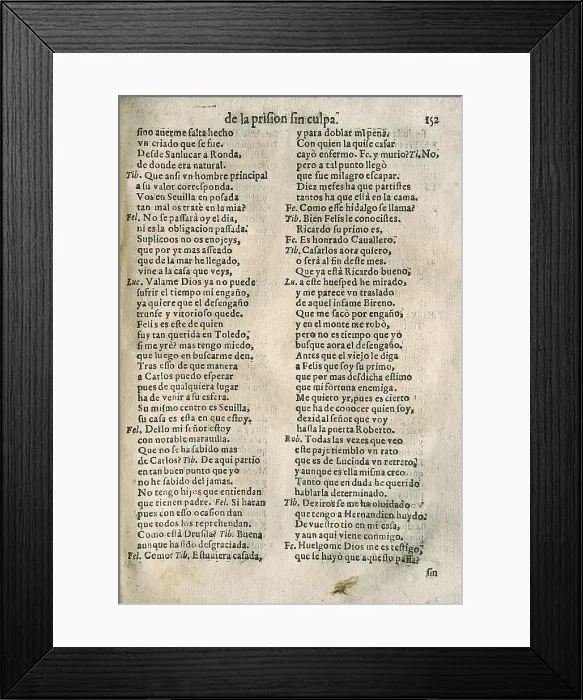 de la prision sin culpa. 152
sino auerme falta hecho
vn criado que se fue.
Desde Sanlucar a Ronda,
de donde era natural.
Tib. Que ansi vn hombre principal
a su valor corresponda.
Vos en Seuilla en posada
tan mal os trate en la mia?
Fel. No se passarà oy el dia,
ni es la obligacion passada.
Suplicoos no os enojeys,
que por yr mas asseado
que de la mar he llegado,
vine a la casa que veys,
Luc. Valame Dios ya no puede
sufrir el tiempo mi engaño,
ya quiere que el desengaño
triunfe y vitorioso quede.
Felis es este de quien
fuy tan querida en Toledo,
si me yrè? mas tengo miedo,
que luego en buscarme den.
Tras esso de que manera
a Carlos puedo esperar
pues de qualquiera lugar
ha de venir a su esfera.
Su mismo centro es Seuilla,
su casa es esta en que estoy.
Fel. Dello mi señor estoy
con notable marauilla.
Que no se ha sabido mas
de Carlos? Tib. De aqui partio
en tan buen punto que yo
no he sabido del jamas.
No tengo hijos que entiendan
que tienen padre. Fel. Si haran
pues con esso ocasion dan
que todos los reprehendan.
Como està Drusila? Tib. Buena
aunque ha sido desgraciada.
Fel. Como? Tib. Estuuiera casada,
y para doblar mi pena.
Con quien la quise casar
cayò enfermo. Fe. y murio? Ti. No,
pero a tal punto llegò
que fue milagro escapar.
Diez meses ha que partistes
tantos ha que està en la cama.
Fe. Como esse hidalgo se llama?
Tib. Bien Felis le conocistes.
Ricardo su primo es,
Fe. Es honrado Cauallero.
Tib. Casarlos aora quiero,
o serà al fin deste mes.
Que ya està Ricardo bueno,
Lu. a este huesped he mirado,
y me parece vn traslado
de aquel infame Bireno.
Que me sacò por engaño,
y en el monte me robò,
pero no es tiempo que yo
busque aora el desengaño.
Antes que el viejo le diga
a Felis que soy su primo,
que por mas desdicha estimo
que mi fortuna enemiga.
Me quiero yr, pues es cierto
que ha de conocer quien soy,
dezid al señor que voy
hasta la puerta Roberto.
Rob. Todas las vezes que veo
este paje tiemblo vn rato
que es de Lucinda vn retrato,
y aunque es ella misma creo
Tanto que en duda he querido
hablarla determinado.
Tib. Deziros se me ha oluidado
que tengo a Hernandico huydo.
De vuestro tio en mi casa,
y aun aqui viene conmigo.
Fe. Huelgome Dios me es testigo,
que se huyò que aquesto passa?
sin